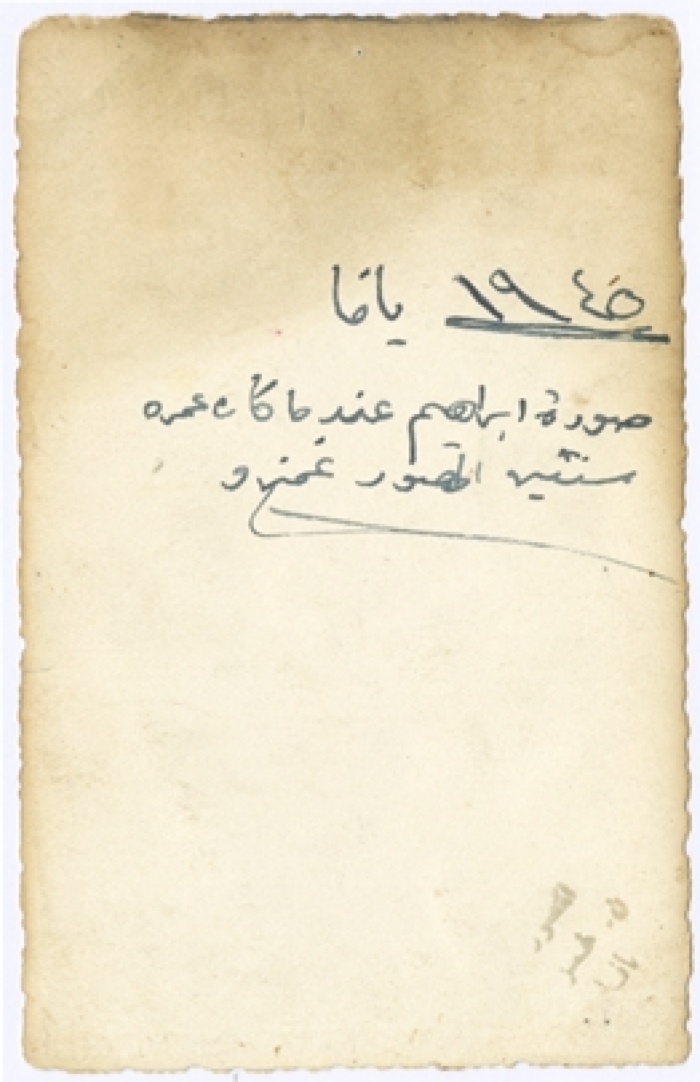 ١٩٤٥ يافا
صورة ابراهيم عندما كان عمره
سنتين المصور